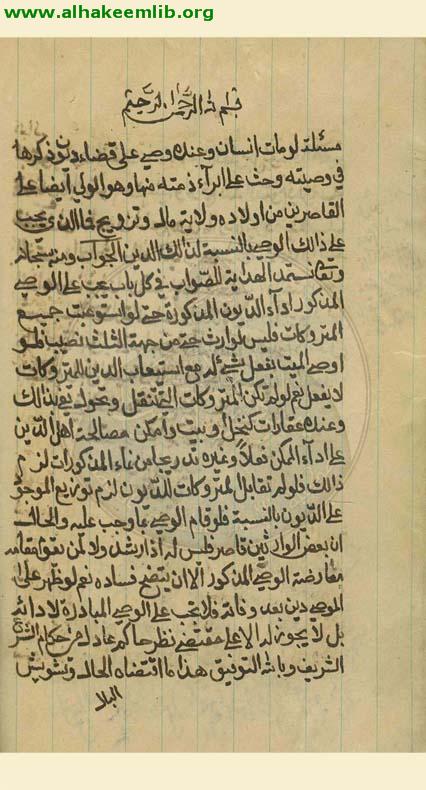 www.alhakeemlib.org
بسم الله الرحمن الرحيم
مسئلة لومات انسان وعنده وصي على قضاء ديون ذكرها
في وصيته وحث على ابرآء ذمته منها وهو الولي ايضا على
القاصرين من اولاده ولاية مال وتزويج فما الذي يجب
على ذالك الوصي بالنسبة لذالك الدين الجواب ومنه سبحانه
وتعا نستمد الهداية للصواب في كل باب يجب على الوصي
المذكور ادآء الديون المذكورة حتى لو استوعبت جميع
المتروكات فليس لوارث حتى من جهة الثلث نصيب فلو
اوصى الميت بفعل شيئ له مع استيعاب الدين للمتروكات
لا يفعل نعم لو لم تكن المتروكات التي تنقل وتحول تفي بذالك
وعنده عقارات كنخل وبيت وامكن مصالحة اهل الدين
على ادآء الممكن فعلاً وغيره تدريجا من نماء المذكورات لزم
ذالك فلو لم تقابل المتروكات الديون لزم توزيع الموجود
على الديون بالنسبة فلو قام الوصي بما وجب عليه والحال
ان بعض الوارثين قاصر فليس له اذا رشد ولا لمن يقوم مقامه
معارضة الوصي المذكور الا ان يتضح فساده نعم لو ظهر على
الموصي دين بعد وفاته فلا يجب على الوصي المبادرة لادائه
بل لا يجوز له الا على مقتضى نظر حاكم عادل من حكام الشرع
الشريف وبالله التوفيق هذا ما اقتضاه الحال وتشويش
البلا